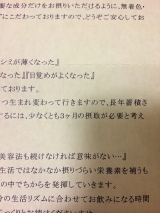 要な成分だけをお摂りいただけるように、無着色・
"にこだわっておりますので、どうぞご安心してお
シミが薄くなった』
なった』『目覚めがよくなった』
ております。
つ生まれ変わって行きますので、長年蓄積さ
するには、少なくとも3ヶ月の摂取が必要と考え
美容法も続けなければ意味がない…』
生活ではなかなか摂りづらい栄養素を補うも
の中でちからを発揮していきます。
分の生活リズムに合わせてお飲みになる時間